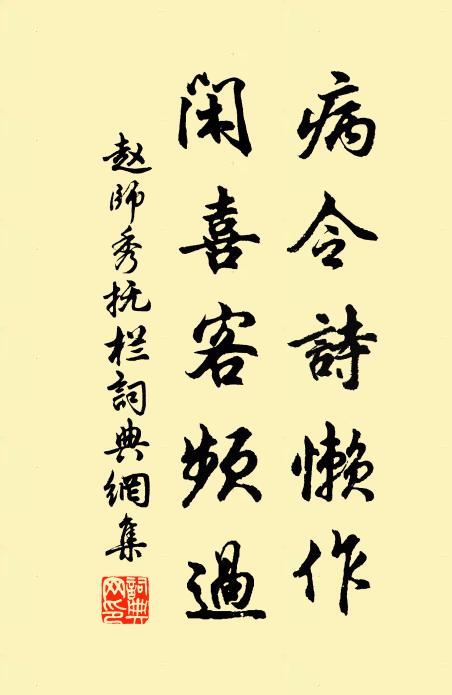 病令詩懶作
闲喜客頻過
赵師秀抚栏詞典網集
詞典
网印